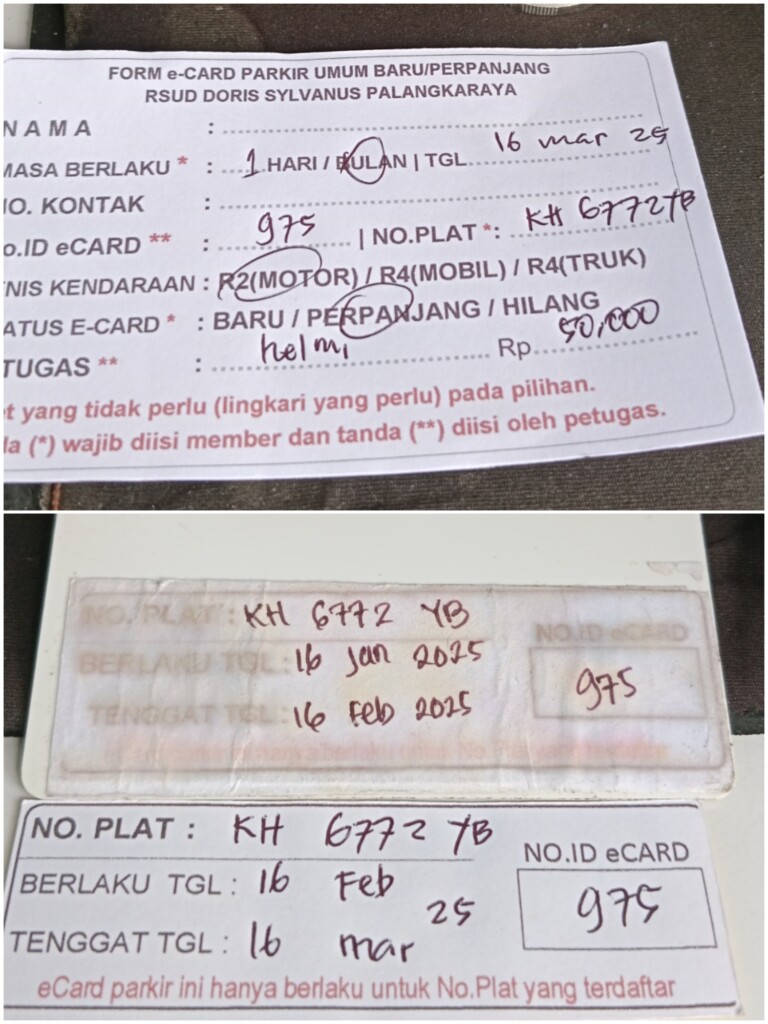 FORM e-CARD PARKIR UMUM BARU/PERPANJANG
RSUD DORIS SYLVANUS PALANGKARAYA
NAMA :
MASA BERLAKU * : 1 HARI / BULAN | TGL 16 mar 25
NO. KONTAK :
No.ID eCARD ** : 975 | NO.PLAT *: KH 6772 YB
NIS KENDARAAN : R2(MOTOR) / R4(MOBIL) / R4(TRUK)
ATUS E-CARD * : BARU / PERPANJANG / HILANG
TUGAS ** : helmi Rp 50,000
t yang tidak perlu (lingkari yang perlu) pada pilihan.
la (*) wajib diisi member dan tanda (**) diisi oleh petugas.
NO. PLAT : KH 6772 YB
NO.ID eCARD
BERLAKU TGL : 16 Jan 2025
975
TENGGAT TGL : 16 Feb 2025
NO. PLAT : KH 6772 YB
NO.ID eCARD
BERLAKU TGL : 16 Feb
25
975
TENGGAT TGL : 16 mar
eCard parkir ini hanya berlaku untuk No.Plat yang terdaftar